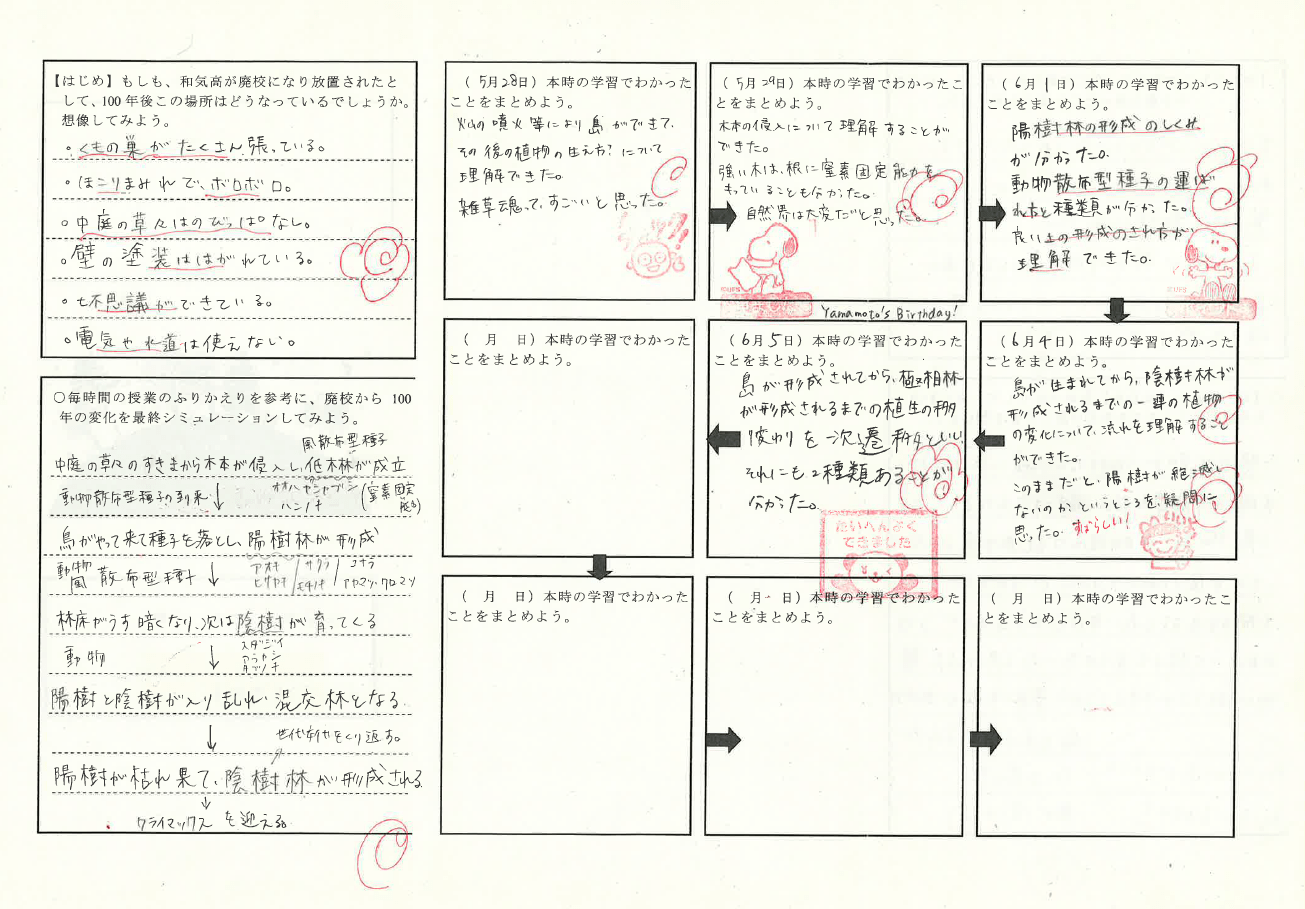 【はじめ】もしも、和気高が廃校になり放置されたと
して、100年後この場所はどうなっているでしょうか。
想像してみよう。
・くもの巣がたくさん張っている。
・ほこりまみれで、ボロボロ。
・中庭の草々はのびっぱなし。
・壁の塗装ははがれている。
・七不思議ができている。
・電気や水道は使えない。
(5月28日)本時の学習でわかった
ことをまとめよう。
火山の噴火等により島ができて、
その後の植物の生え方?について
理解できた。
雑草魂って、すごいと思った。
(5月29日)本時の学習でわかったこ
とをまとめよう。
木本の侵入について理解することが
できた。
強い木は、根に窒素固定能力を
もっていることも分かった。
自然界は大変だと思った。
Yamamoto's Birthday!
(6月1日)本時の学習でわかった
ことをまとめよう。
陽樹林の形成のしくみ
が分かった。
動物散布型種子の運ば
れ方と種類が分かった。
良い土の形成のされ方が
理解できた。
(6月4日)本時の学習でわかった
ことをまとめよう。
島が生まれてから、陰樹林が
形成されるまでの一連の植物
の変化について、流れを理解すること
ができた。
このままだと、陽樹が絶滅し
ないのか、というところを、疑問に
思った。すばらしい!
(6月5日)本時の学習でわかった
ことをまとめよう。
島が形成されてから、極相林
が形成されるまでの植生の移り
変わりを一次遷移といい、
それにも2種類あることが
分かった。
たいへんよく
できました
(　月　日)本時の学習でわかった
ことをまとめよう。
(　月　日)本時の学習でわかった
ことをまとめよう。
(　月　日)本時の学習でわかった
ことをまとめよう。
(　月　日)本時の学習でわかったこ
とをまとめよう。
○毎時間の授業のふりかえりを参考に、廃校から100
年の変化を最終シミュレーションしてみよう。
風散布型種子
中庭の草々のすきまから木本が侵入し、低木林が成立
動物散布型種子の到来 ↓ オオバヤシャブシ
ハンノキ
(窒素固定
能力)
鳥がやって来て種子を落とし、陽樹林が形成
動物
風 散布型種子 ↓
アオキ/サクラ/コナラ
ヒサカキ/モチノキ/アカマツ・クロマツ
林床がうす暗くなり、次は陰樹が育ってくる
動物 ↓
スダジイ
アラカシ
タブノキ
陽樹と陰樹が入り乱れ、混交林となる
↓ 世代交代をくり返す。
陽樹が枯れ果て、陰樹林が形成される
↓
クライマックスを迎える。